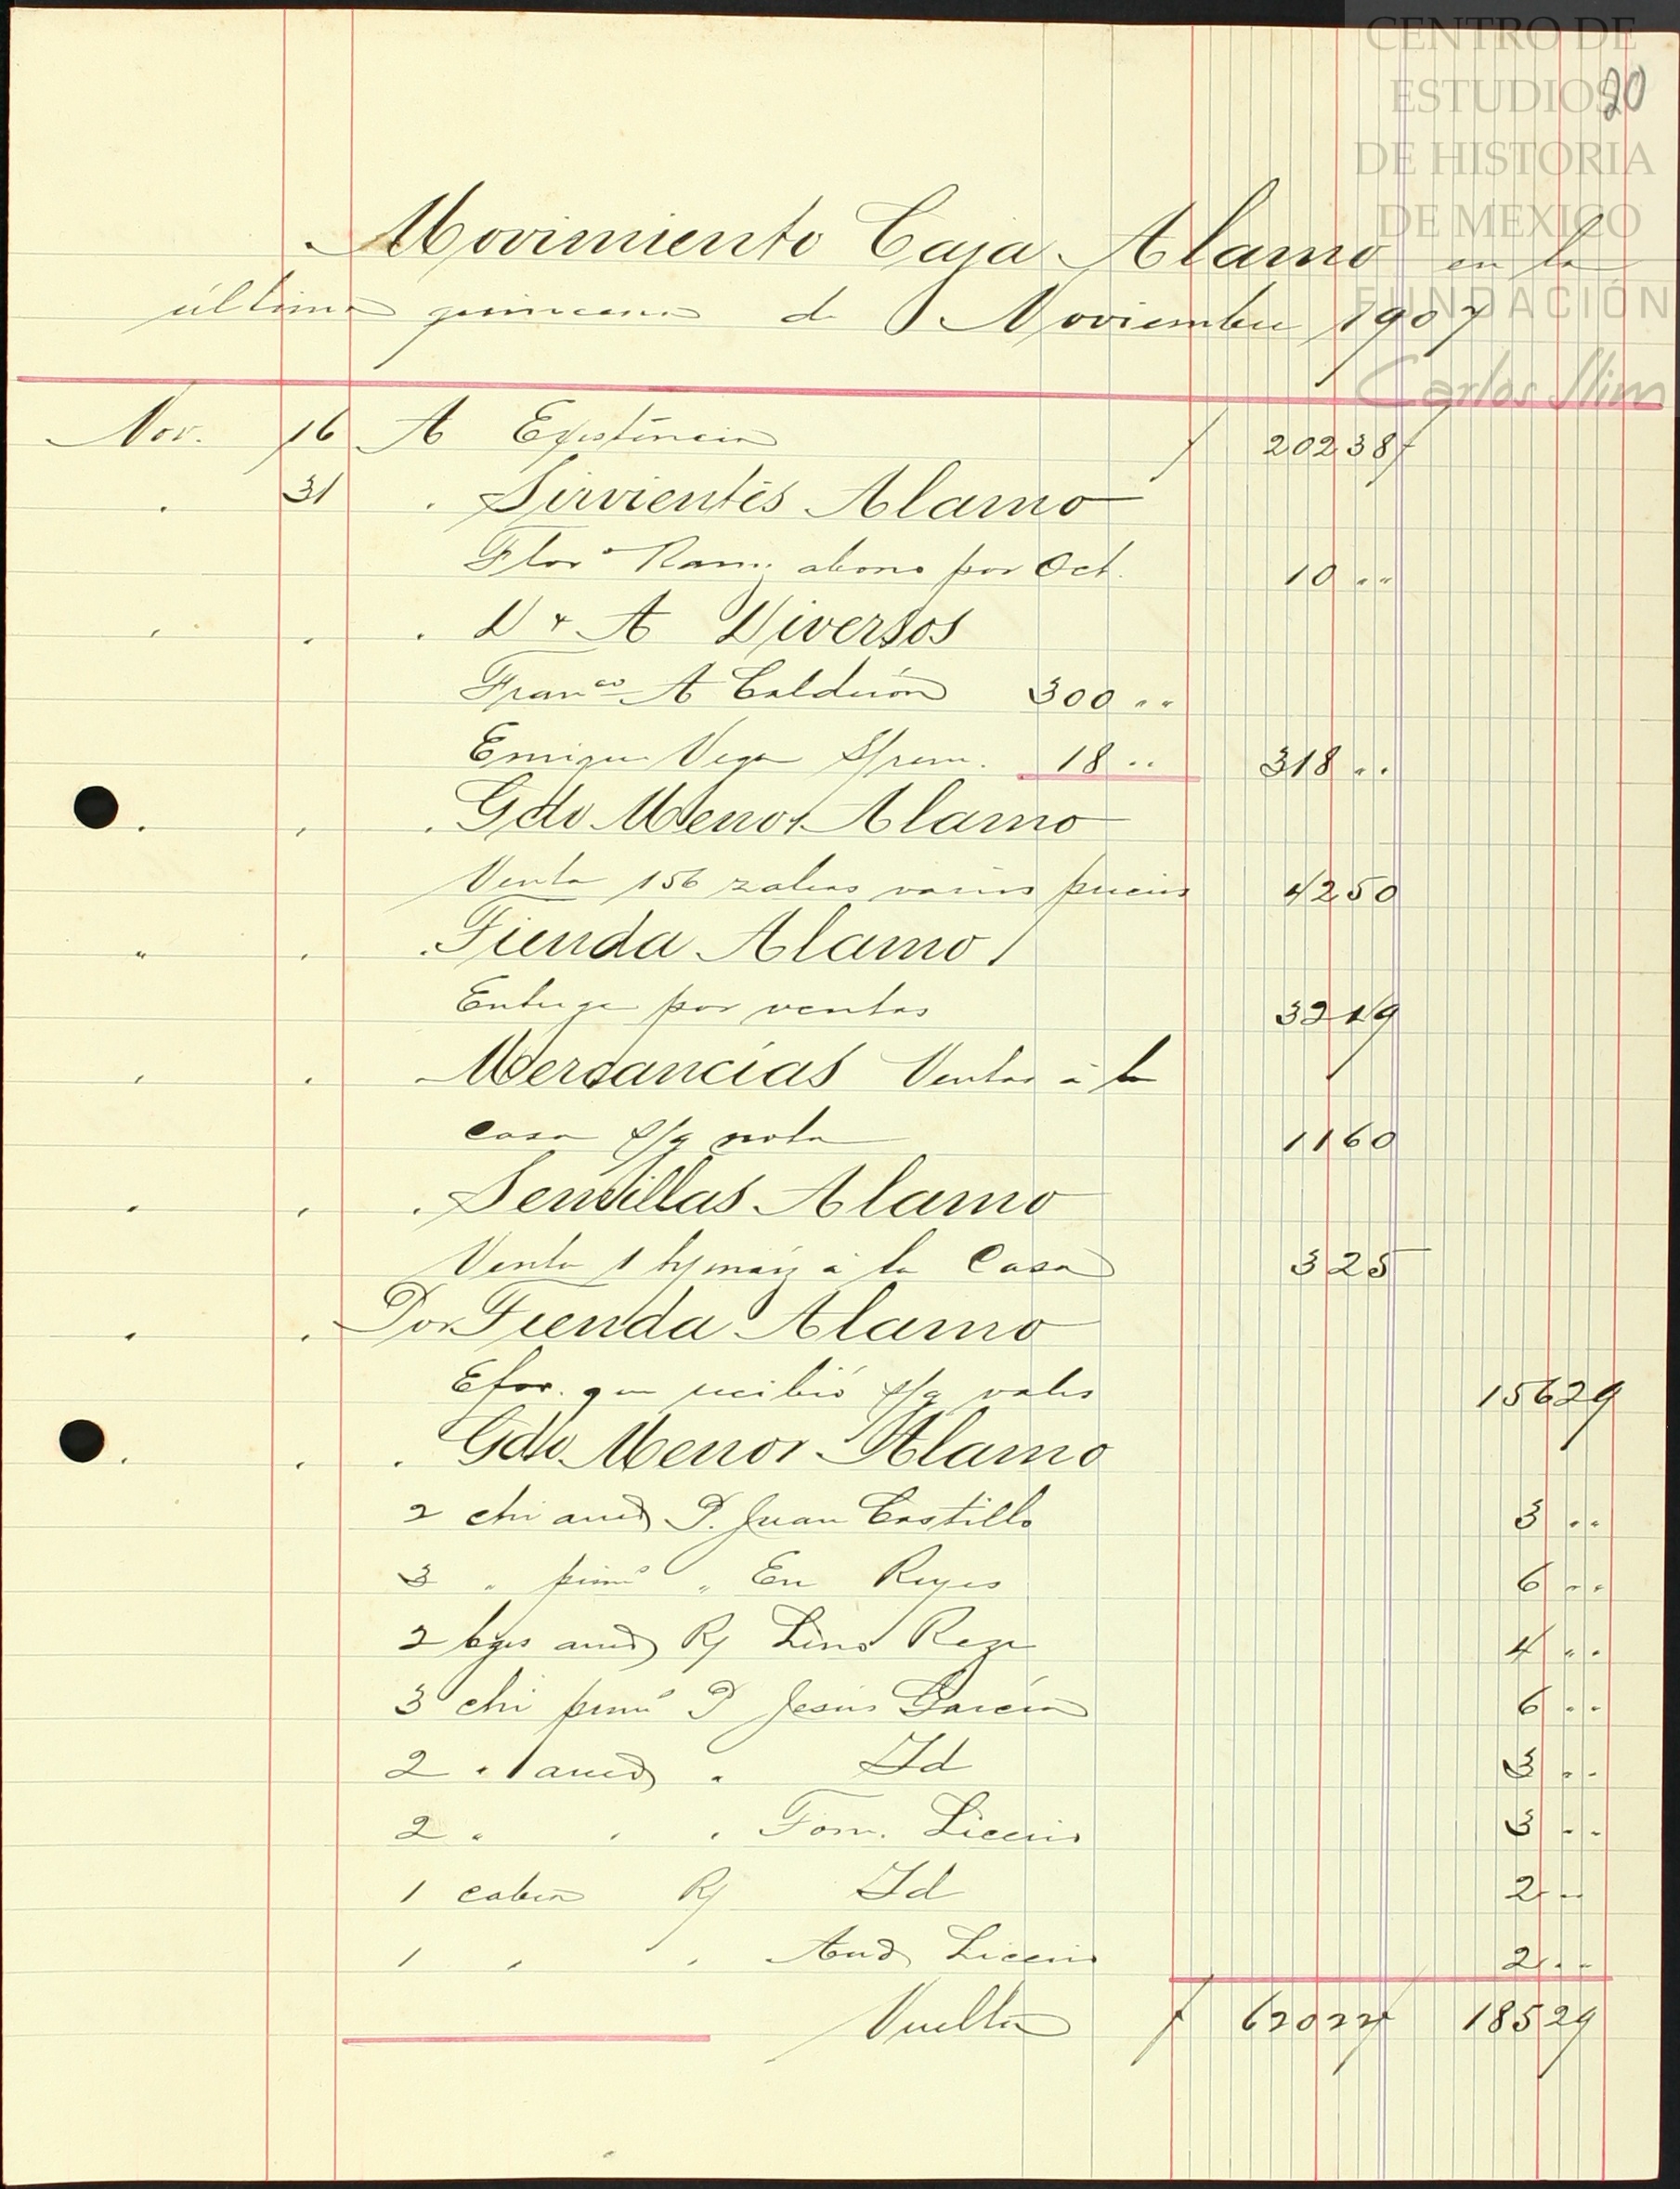 CENTRO DE
ESTUDIOS
DE HISTORIA
DE MEXICO
FUNDACIÓN
Carlos Slim
20
Movimiento Caja Alamo en la
última quincena de Noviembre 1907
Nov. 16 A Existéncia $ 202387
" 31 " Sirvientés Alamo
Flor° Ram. abono por Oct. 10 ""
" " " D & A Diversos
Franco A Calderón 300 ""
Enrique Vega 18 "" 318 ""
" " " Gdo Menor Alamo
Venta 156 zaleas varios precios 4250
" " " Tienda Alamo
Entrega por ventas 3219
" " " Mercancías Ventas á la
casa s/g nota 1160
" " " Semillas Alamo
Venta 1 maiz á la Casa 325
" " Por Tienda Alamo
Efvo. que recibió s/g vales 15629
" " " Gdo. Menor Alamo
2 chi P. Juan Castillo 3 ""
3 " " Reyes 6 ""
2 Lino 4 ""
3 chi P Jesús García 6 ""
2 " " Id 3 ""
2 " " " Tom. 3 ""
1 Id 2 ""
1 " " And 2 ""
Vuelta $ 62022 18529